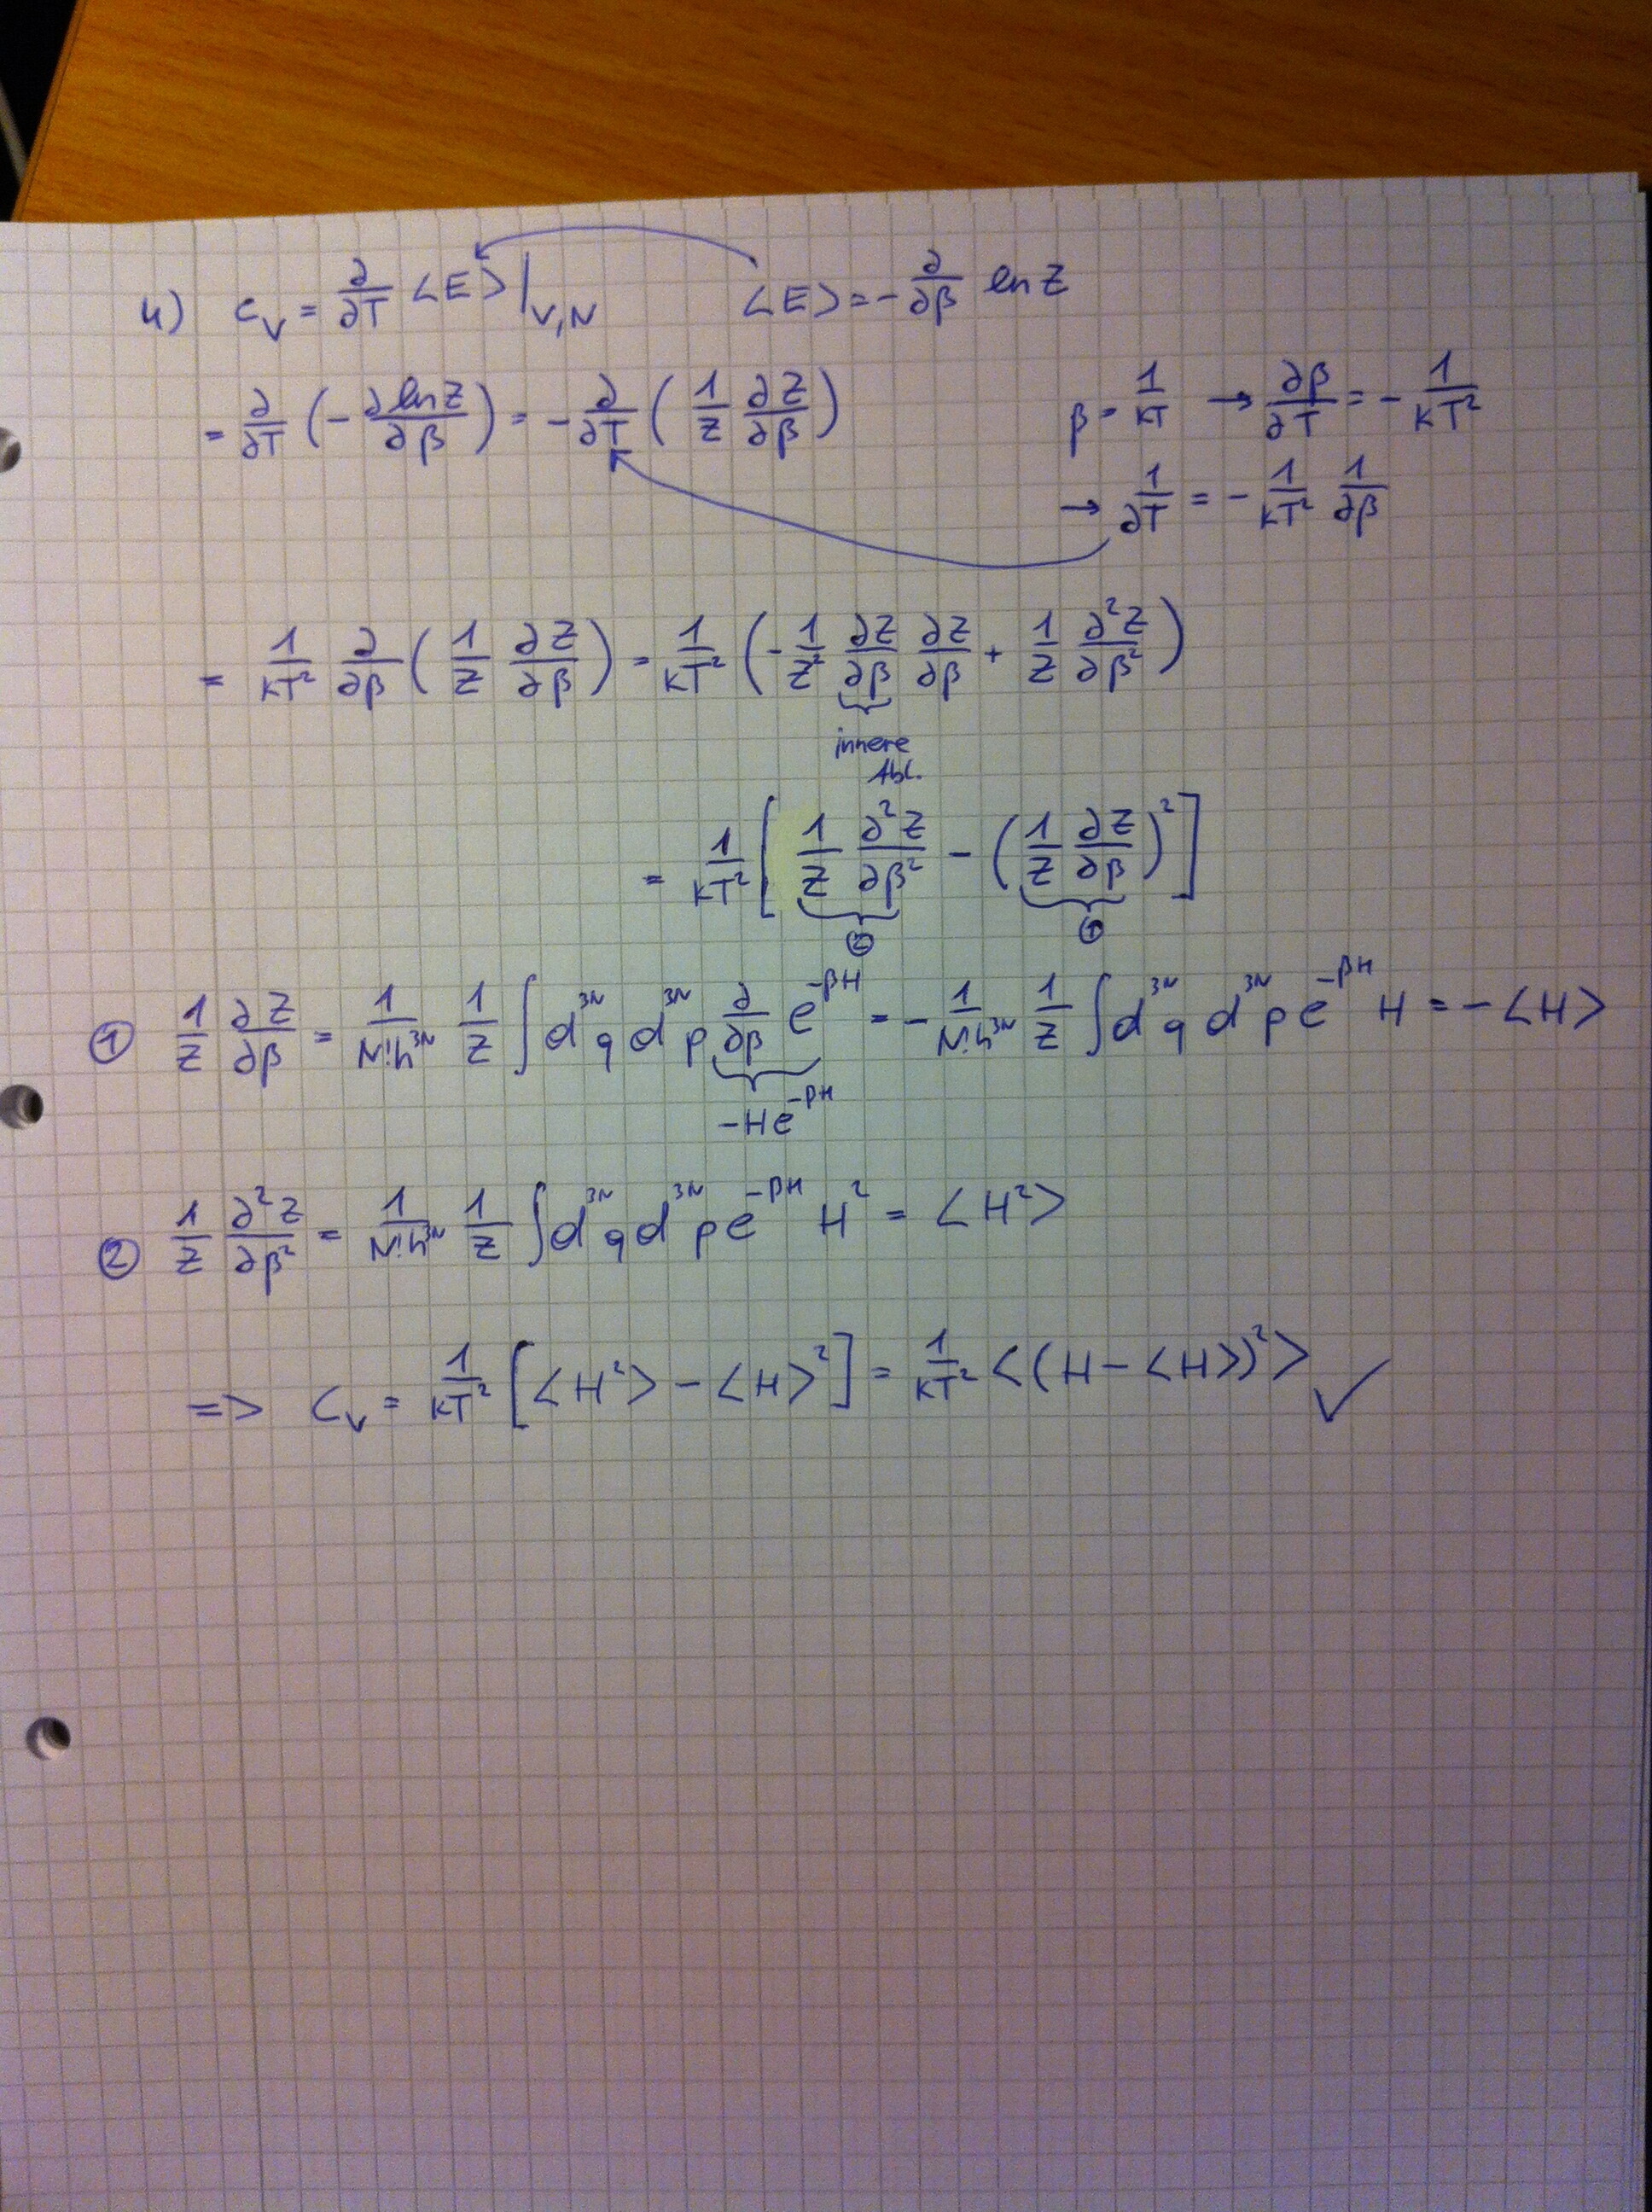 4) c_V = ∂/∂T <E>|_V,N   <E> = - ∂/∂β ln Z
= ∂/∂T (- ∂ ln Z/∂β) = - ∂/∂T (1/Z ∂Z/∂β)   β = 1/kT → ∂β/∂T = - 1/kT²
→ 1/∂T = - 1/kT² 1/∂β
= 1/kT² ∂/∂β (1/Z ∂Z/∂β) = 1/kT² (- 1/Z² ∂Z/∂β ∂Z/∂β + 1/Z ∂²Z/∂β²)
innere
Abl.
= 1/kT² [1/Z ∂²Z/∂β² - (1/Z ∂Z/∂β)²]
② ①
① 1/Z ∂Z/∂β = 1/N!h^3N 1/Z ∫d^3N q d^3N p ∂/∂β e^-βH = - 1/N!h^3N 1/Z ∫d^3N q d^3N p e^-βH H = - <H>
-He^-βH
② 1/Z ∂²Z/∂β² = 1/N!h^3N 1/Z ∫d^3N q d^3N p e^-βH H² = <H²>
=> C_V = 1/kT² [<H²> - <H>²] = 1/kT² <(H - <H>)²> ✓